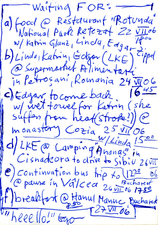 Waiting FOR:
a) food @ Restaurant "Rotunda"
National Park Retezat 22 VII 06
w/ Katrin Glanz, Linda, Edgar
b) Linda, Katrin, Edgar (LKE)
@ supermarket Alimentari
in Petrosani, Romania 24 VII 06
c) Edgar to come back 16 45
w/ wet towel for Katrin (she
suffers from heat(stroke?)) @
monastery Cozia 25 VII 06
w/ Linda
d) LKE @ Camping Annas in
Cisnadioara to drive to Sibiu 24 VII 06
e) continuation bus trip to
@ pause in Vâlcea Bucharest
f) breakfast @ Hanul Manuc Bucharest
27 VII 06
"heeello!"